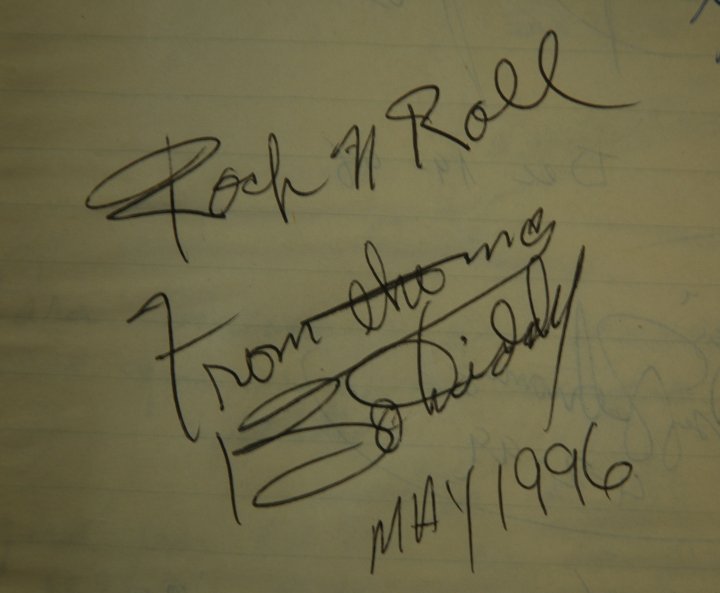 Rock n Roll
From
Bo Diddly
MAY 1996